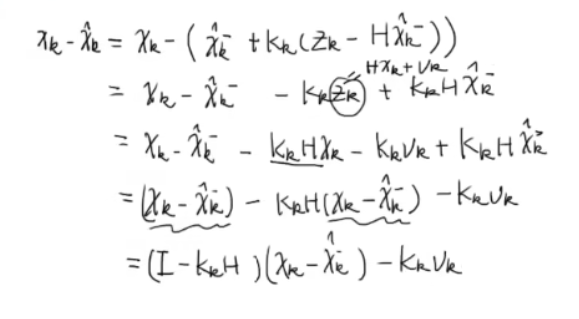 xₖ - x̂ₖ = xₖ - ( x̂ₖ⁻ + Kₖ(zₖ - Hx̂ₖ⁻))
Hxₖ + vₖ
= xₖ - x̂ₖ⁻ - Kₖzₖ + KₖHx̂ₖ⁻
= xₖ - x̂ₖ⁻ - KₖHxₖ - Kₖvₖ + KₖHx̂ₖ⁻
= (xₖ - x̂ₖ⁻) - KₖH(xₖ - x̂ₖ⁻) - Kₖvₖ
= (I - KₖH)(xₖ - x̂ₖ⁻) - Kₖvₖ